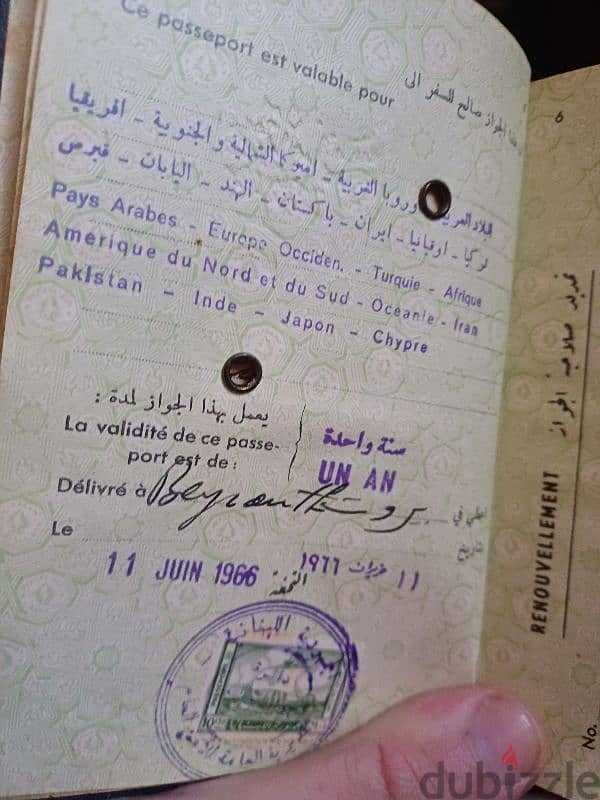 Ce passeport est valable pour
هذا الجواز صالح للسفر الى
البلاد العربية - اوروبا الغربية - اميركا الشمالية والجنوبية - افريقيا
تركيا - اوقيانيا - ايران - باكستان - الهند - اليابان - قبرص
Pays Arabes - Europe Occiden. - Turquie - Afrique
Amerique du Nord et du Sud - Oceanie - Iran
Pakistan - Inde - Japon - Chypre
يعمل بهذا الجواز لمدة :
سنة واحدة
La validité de ce passe-
port est de :
UN AN
Délivré à Beyrouth بيروت اعطي في
Le
تاريخ
11 JUIN 1966
11 حزيران ١٩٦٦
اللبنانية
6
تمديد صلاحية الجواز
RENOUVELLEMENT
No.
dubizzle